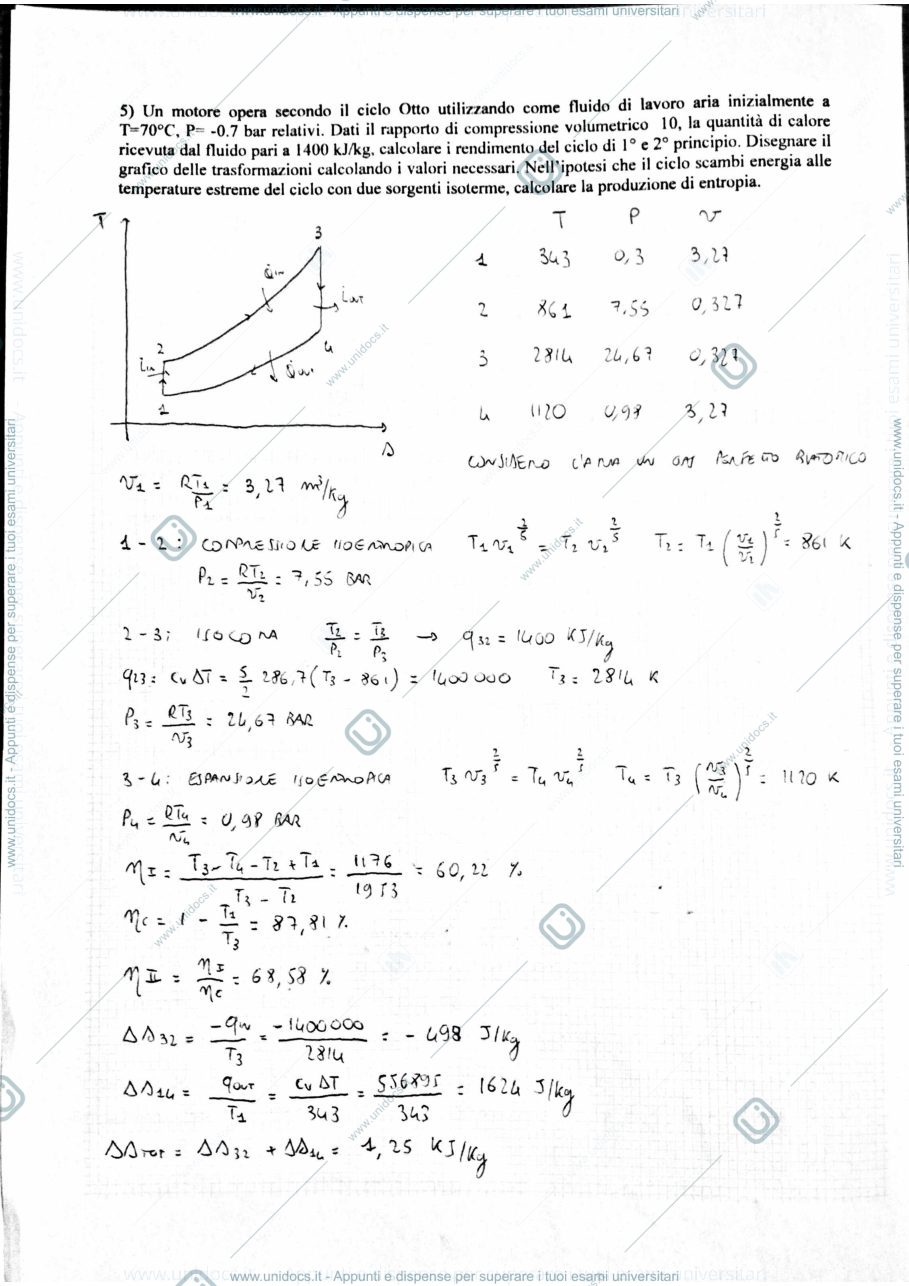 www.unidocs.it - Appunti e dispense per superare i tuoi esami universitari
5) Un motore opera secondo il ciclo Otto utilizzando come fluido di lavoro aria inizialmente a
T=70°C, P= -0.7 bar relativi. Dati il rapporto di compressione volumetrico 10, la quantità di calore
ricevuta dal fluido pari a 1400 kJ/kg, calcolare i rendimento del ciclo di 1° e 2° principio. Disegnare il
grafico delle trasformazioni calcolando i valori necessari. Nell'ipotesi che il ciclo scambi energia alle
temperature estreme del ciclo con due sorgenti isoterme, calcolare la produzione di entropia.
T
3
Q̇in
Lout
2
Lin
4
Q̇out
1
s
T P v
1 343 0,3 3,27
2 861 7,55 0,327
3 2814 24,67 0,327
4 1120 0,98 3,27
CONSIDERO L'ARIA UN GAS PERFETTO BIATOMICO
v1 = RT1/P1 = 3,27 m³/kg
1 - 2 : COMPRESSIONE ISOENTROPICA T1 v1^2/5 = T2 v2^2/5 T2 = T1 (v1/v2)^2/5 = 861 K
P2 = RT2/v2 = 7,55 BAR
2 - 3 : ISOCORA T2/P2 = T3/P3 → q32 = 1400 KJ/kg
q23 = cv ΔT = 5/2 286,7 (T3 - 861) = 1400000 T3 = 2814 K
P3 = RT3/v3 = 24,67 BAR
3 - 4 : ESPANSIONE ISOENTROPICA T3 v3^2/5 = T4 v4^2/5 T4 = T3 (v3/v4)^2/5 = 1120 K
P4 = RT4/v4 = 0,98 BAR
ηI = T3 - T4 - T2 + T1/T3 - T2 = 1176/1953 = 60,22 %
ηc = 1 - T1/T3 = 87,81 %
ηII = ηI/ηc = 68,58 %
Δs32 = -qin/T3 = -1400000/2814 = - 498 J/kg
Δs14 = qout/T1 = cv ΔT/343 = 556895/343 = 1624 J/kg
Δstot = Δs32 + Δs14 = 1,25 KJ/kg
www.unidocs.it - Appunti e dispense per superare i tuoi esami universitari